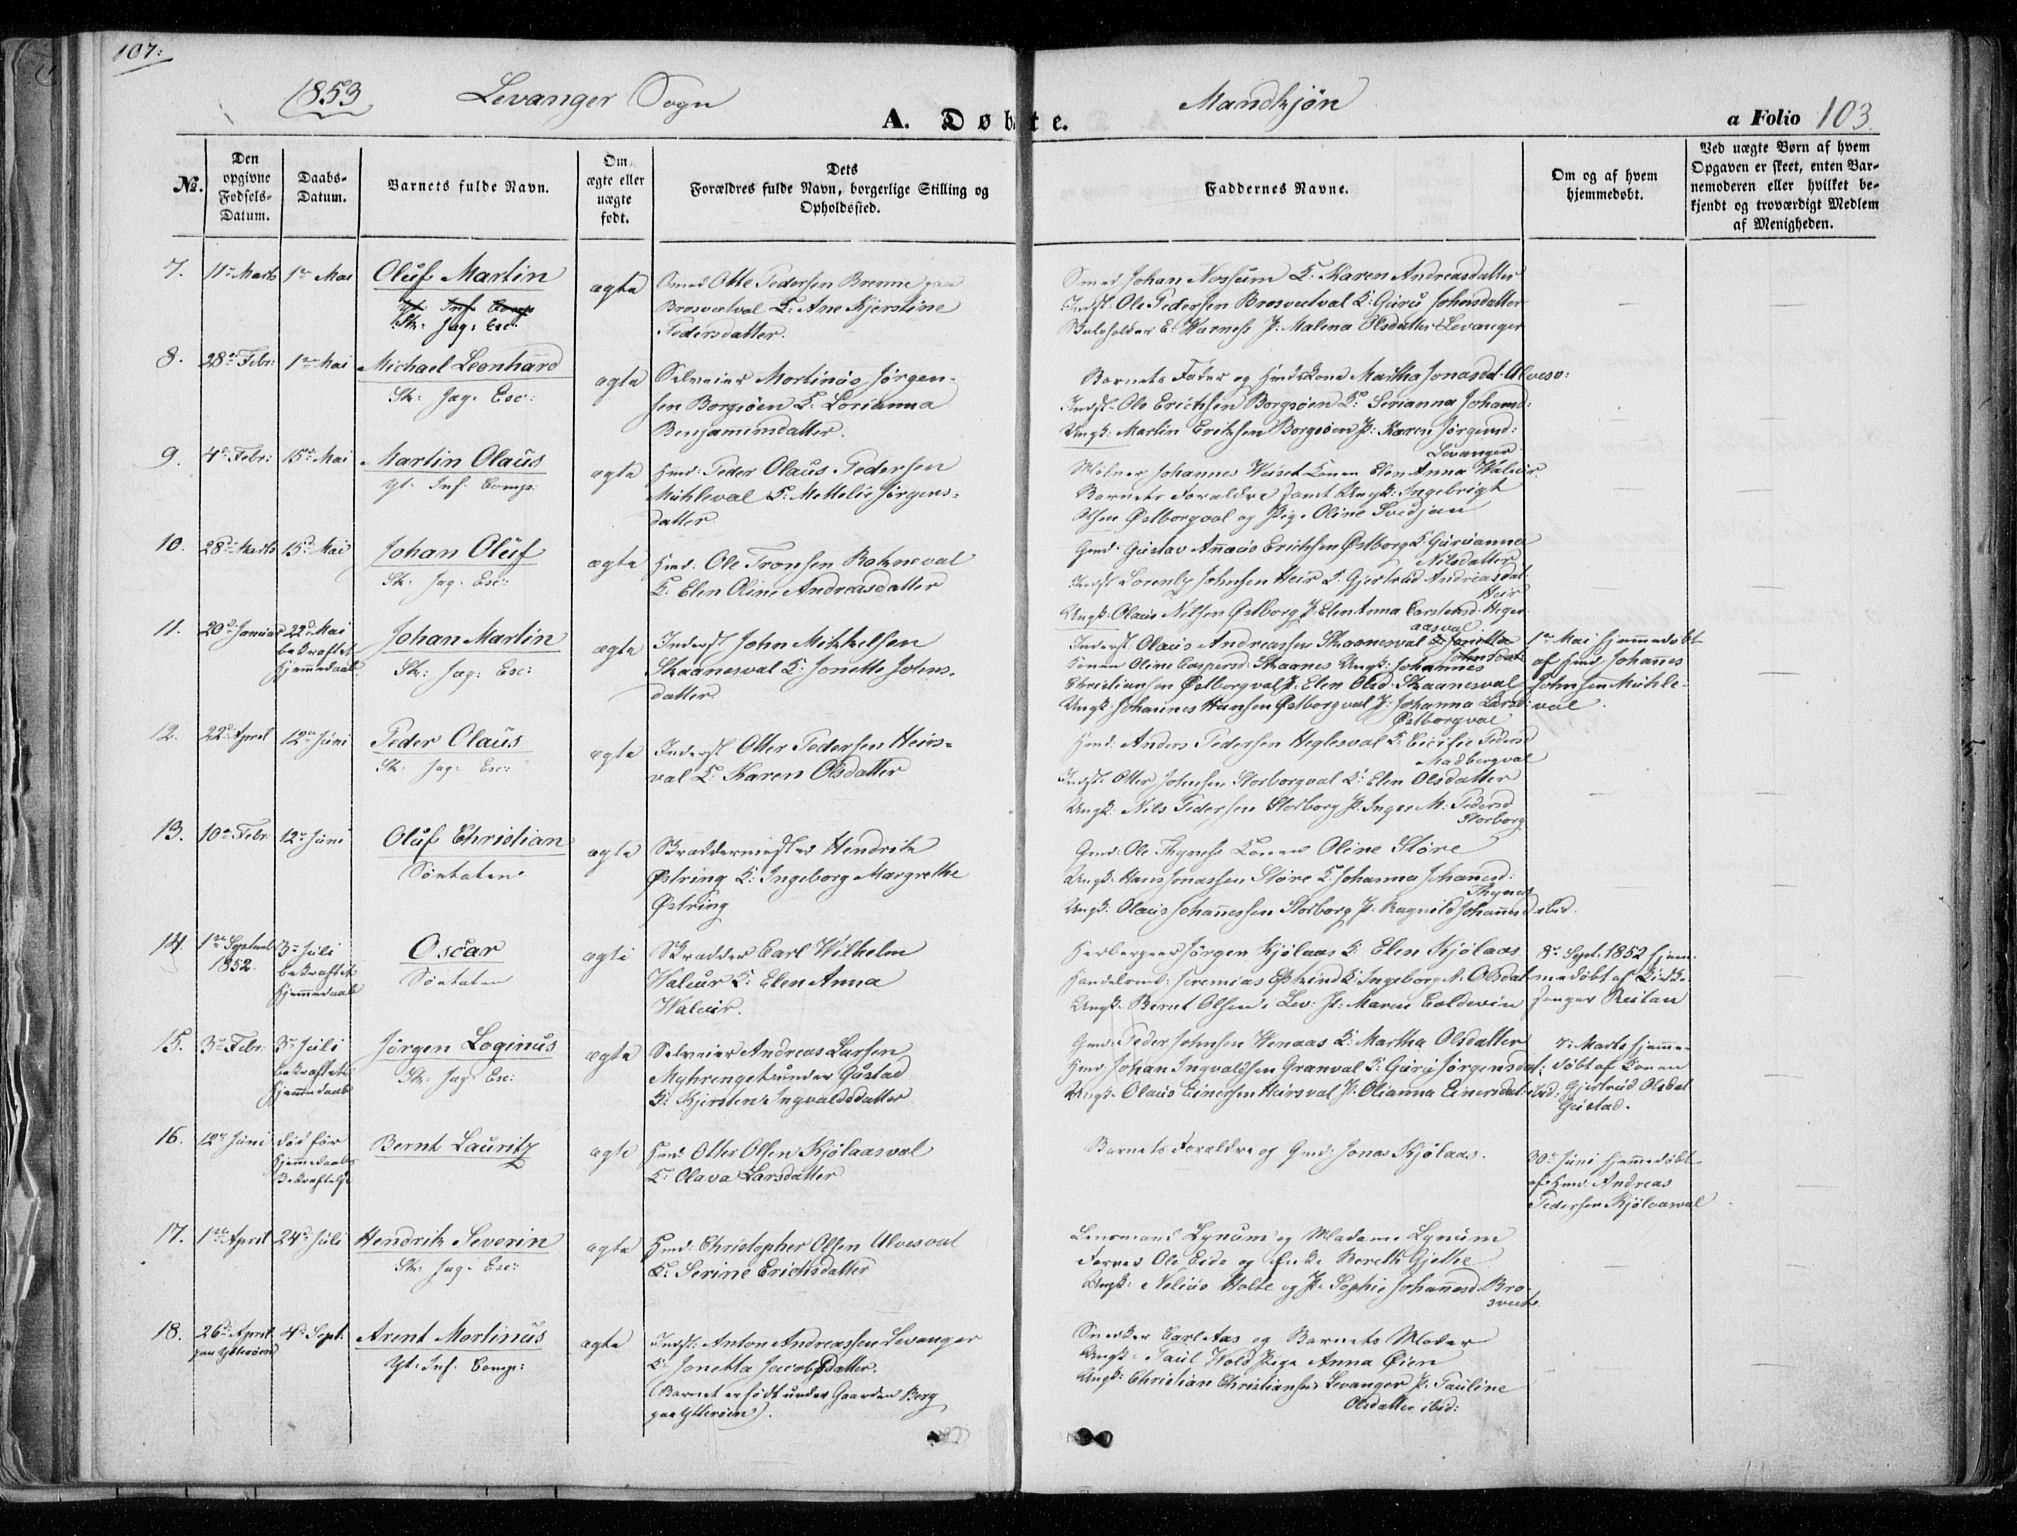 107:
1853
Levanger Sogn
Mandkjøn
A. Døbte.
a Folio 103.
No.
Den opgivne Fødsels-Datum.
Daabs-Datum.
Barnets fulde Navn.
Om ægte eller uægte født.
Dets Forældres fulde Navn, borgerlige Stilling og Opholdssted.
Faddernes Navne.
Om og af hvem hjemmedøbt.
Ved uægte Børn af hvem Opgaven er skeet, enten Barnemoderen eller hvilket bekjendt og troværdigt Medlem af Menigheden.
7. 11te Marts 1te Mai Oluf Martin ægte
Yt: Inf. Comp:
Sk: Jag: Esc:
Smed Otte Pedersen Bremne paa
Brosvetval K: Ane Kjerstine
Pedersdatter.
Smed Johan Nossum K: Karen Andreasdatter
Indst: Ole Pedersen Brosvetval K: Guru Johnsdatter
E: Warness P: Malena Olsdatter Levanger
8. 28de Febr: 1te Mai Michael Leonhard ægte
Sk: Jag: Esc:
Selveier Mortinus Jørgen-
sen Borgsøen K: Lorianna
Benjaminsdatter.
Barnets Fader og Martha Jonasd: Ulvesv:
Indst: Ole Erichsen Borgsøen K: Serianna Johansd:
Ungk: Martin Erichsen Borgsøen P: Karen Jørgensd:
Levanger
9. 4de Febr: 15de Mai Martin Olaus ægte
Yt: Inf: Comp:
Hmd: Peder Olaus Pedersen
Mühleval K: Mettelie Jørgens-
datter
Møllner Johannes Konen Elen Anna Waleur
Barnets Forældre samt Ungk: Ingebrigt
Olsen Østborgval og Pige Oline Svedjan
10. 28de Marts 15de Mai Johan Oluf ægte
Sk: Jag: Esc:
Hmd: Ole Tronsen Rohneval
K: Elen Oline Andreasdatter
Gmd: Gustav Annæus Erichsen Østborg K: Gurianna
Nilsdatter
Indst: Lorentz Johnsen Heir K: Gjertrud Andreasdat:
Heir
Ungk: Olaus Nilsen Østborg P: Elen Anna Carstensd:
aasval
11. 20de Januar 22de Mai
bekræftet
Hjemmedaab
Johan Martin ægte
Sk: Jag: Esc:
Inderst John Mikkelsen
Skaanesval K: Jonetta Johns-
datter
Inderst: Olaus Andreassen Skaanesval K: Jonetta
Johnsdat:
Konen Oline Caspersd: Skaanes Ungk: Johannes
Christiansen Østborgval P: Elen Olsd: Skaanesval
Ungk: Johannes Hansen Østborgval P: Johanna Larsd:
Østborgval
1te Mai hjemmedøbt
af Hmd: Johannes
Johnsen Mühle-
val.
12. 22de April 12te Juni Peder Olaus ægte
Sk: Jag: Esc:
Inderst Otter Pedersen Heirs-
val K: Karen Olsdatter
Hmd: Anders Pedersen Heglesval K: Cicilie Pedersd
Madbergval
Indst: Otter Johnsen Storborgval K: Elen Olsdatter
Ungk: Nils Pedersen Storborg P: Inger M: Pedersd
Storborg
13. 10de Febr: 12te Juni Oluf Christian ægte
Søetaten
Skræddermester Hendrik
Østring K: Ingeborg Margrethe
Østring
Gmd: Ole Thyness Konen Oline Støre
Ungk: Hans Jonassen Støre K: Johanna Johannesd:
Thynes
Ungk: Olaus Johannessen Storborg P: Ragnild Johannesd ibid.
14. 1te Septembr 1852. 3de Juli
bekræftet
Hjemmedaab
Oscar ægte
Søetaten
Skrædder Carl Wilhelm
Waleur K: Elen Anna
Waleur.
Jørgen Kjølaas K: Elen Kjølaas
Handelsmd: Jeremias Eskind K: Ingeborg A. Olsdat
Ungk: Bernt Olsen Lev: P: Maren Coldevin
8de Sept: 1852 hjem-
medøbt af Kirke-
sanger Reitan
15. 3de Febr: 3de Juli
bekræftet
Hjemmedaab
Jørgen Loginus ægte
Sk: Jag: Esc:
Selveier Andreas Larsen
Myhrenget under Gustad
K: Kjersten Ingvaldsdatter
Gmd: Peder Johnsen Wenaas K: Martha Olsdatter
Hmd: Johan Ingvaldsen Granval K: Guru Jørgensdat:
Ungk: Olaus Einersen Heirsval P: Olianna Einersdat: ibid:
7: Marts hjemme-
døbt af Konen
Gjertrud Olsdat
Gustad.
16. 12te Juni død før
Hjemmedaabs
Bekræftelse
Bernt Lauritz ægte
Hmd: Otter Olsen Kjølaasval
K: Olava Larsdatter
Barnets Forældre og Gmd: Jonas Kjølaas.
30te Juni hjemmedøbt
af Hmd: Andreas
Pedersen Kjølaasval
17. 1te April 24de Juli Hendrik Severin ægte
Sk: Jag: Esc:
Hmd: Christopher Olsen Ulvesval
K: Serine Erichsdatter
Lensmand Lynum og Madame Lynum
Ole Eide og Enke Bereth Gjethe
Ungk: Nelius Holte og P: Sophie Johannesd: Bro-
svedt
18. 26de April
paa Ytterøen
4de Sept: Arent Mortinus ægte
Yt: Inf: Comp:
Indst: Anton Andreassen Levanger
K: Jonetta Jacobsdatter.
(Barnet er født under Gaarden Berg
paa Ytterøen).
Snedker Carl Aas og Barnets Moder
Ungk: Paul Wold Pige Anna Øien
Ungk: Christian Christiansen Levanger P: Pauline
Olsdatter ibid: